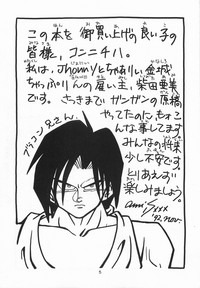 この本を御買い上げの良い子の
皆様，コンニチハ。
私は，Jhonnyとちゃありい金城
ちゃっぷりんの雇い主，柴田亜美
です。さっきまでガンガンの原稿
やってたのにもォこ
んな事してます
みんなの将来
少し不安です
とりあえず
楽しみましょう。
ブラコン兄さん。
5